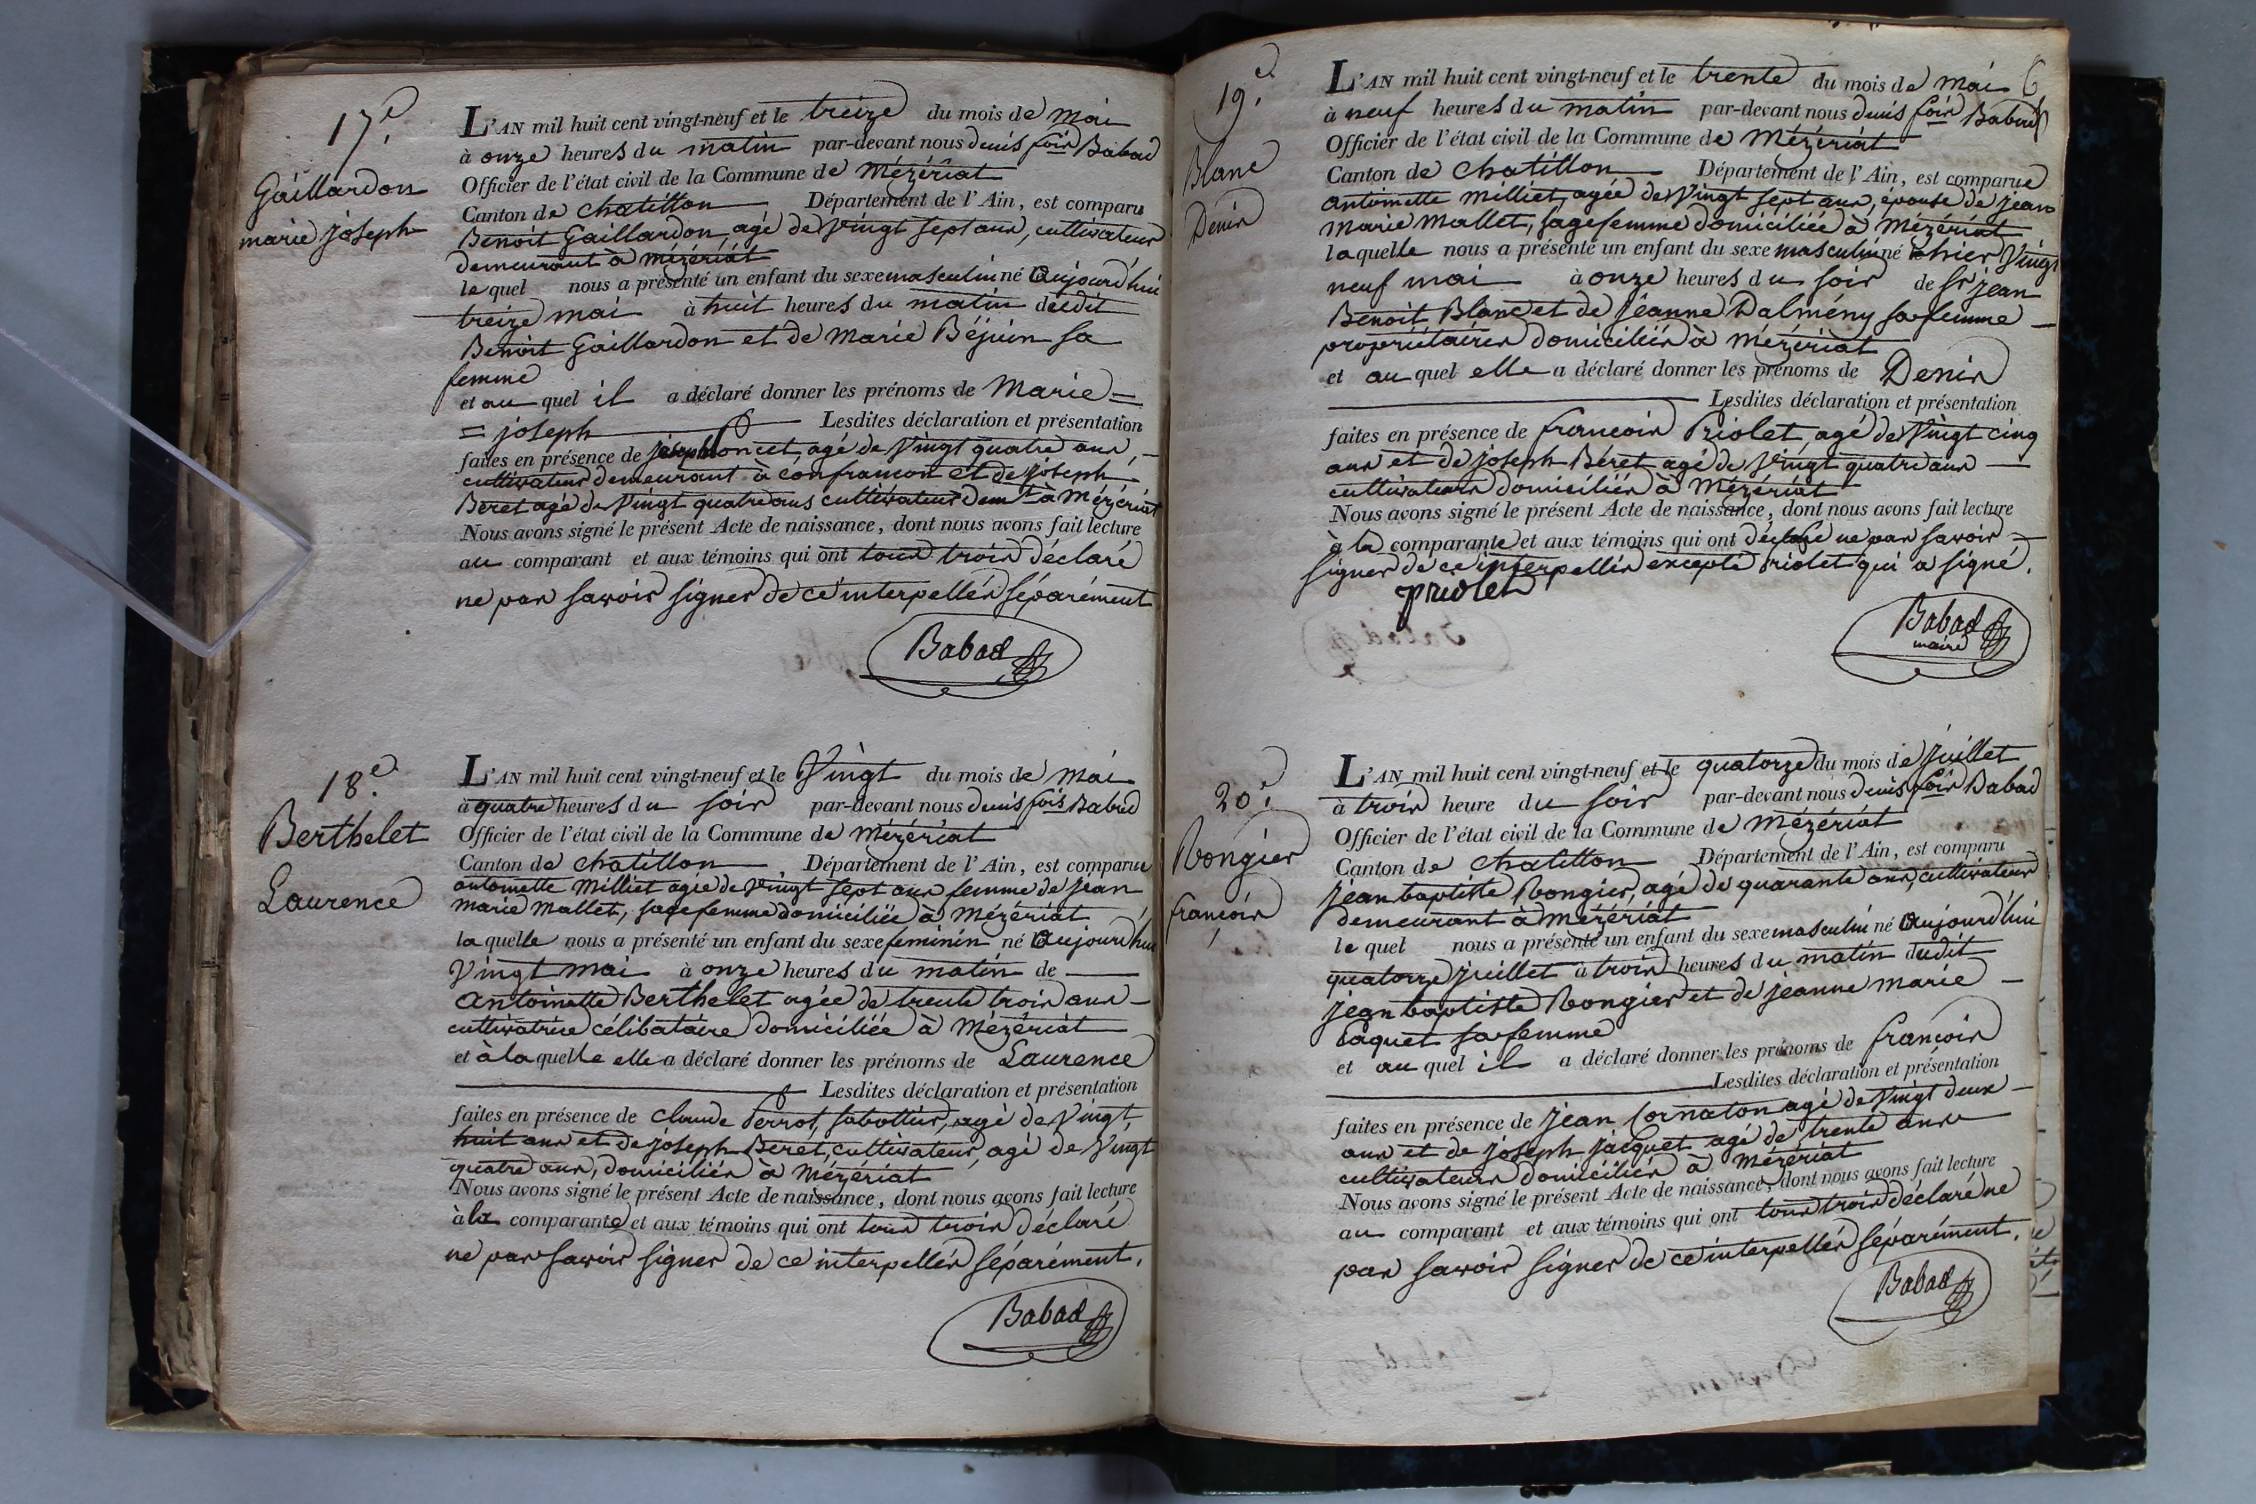 17.e
Gaillardon
marie joseph
L'AN mil huit cent vingt-neuf et le treize du mois de Mai
à onze heures du matin par-devant nous denis fois Babad
Officier de l'état civil de la Commune de Mézériat
Canton de chatillon Département de l'Ain, est comparu
Benoit Gaillardon, agé de Vingt sept ans, cultivateur
demeurant à Mézériat
lequel nous a présenté un enfant du sexe masculin né aujourd'hui
treize mai à huit heures du matin dudit
Benoit Gaillardon et de Marie Béjuin sa
femme
et au quel il a déclaré donner les prénoms de Marie =
= joseph Lesdites déclaration et présentation
faites en présence de joseph agé de Vingt quatre ans,
cultivateur demeurant à confrançon et de joseph
Beret agé de Vingt quatre ans cultivateur demt à Mézériat
Nous avons signé le présent Acte de naissance, dont nous avons fait lecture
au comparant et aux témoins qui ont tous trois déclaré
ne pas savoir signer de ce interpellés séparément
Babad
18.e
Berthelet
Laurence
L'AN mil huit cent vingt-neuf et le Vingt du mois de Mai
à quatre heures du soir par-devant nous denis fois Babad
Officier de l'état civil de la Commune de Mézériat
Canton de chatillon Département de l'Ain, est comparue
antoinette Milliet agée de vingt sept ans femme de jean
marie Mallet, sagefemme domiciliée à Mézériat
laquelle nous a présenté un enfant du sexe feminin né aujourd'hui
Vingt mai à onze heures du matin de
antoinette Berthelet agée de trente trois ans
cultivatrice célibataire domiciliée à Mézériat
et à laquelle elle a déclaré donner les prénoms de Laurence
Lesdites déclaration et présentation
faites en présence de claude Perrot, sabottier, agé de Vingt
huit ans et de joseph Beret, cultivateur, agé de Vingt
quatre ans, domiciliés à Mézériat
Nous avons signé le présent Acte de naissance, dont nous avons fait lecture
à la comparante et aux témoins qui ont tous trois déclaré
ne pas savoir signer de ce interpellés séparément.
Babad
19.e
Blanc
Denis
L'AN mil huit cent vingt-neuf et le trente du mois de mai 6
à neuf heures du matin par-devant nous denis fois Babad
Officier de l'état civil de la Commune de Mézériat
Canton de chatillon Département de l'Ain, est comparue
antoinette Milliet, agée de Vingt sept ans, épouse de jean
marie Mallet, sagefemme domiciliée à Mézériat
laquelle nous a présenté un enfant du sexe masculin né hier Vingt
neuf mai à onze heures du soir de sr jean
Benoit Blanc et de jeanne Dalmény sa femme
propriétaires domiciliés à Mézériat
et au quel elle a déclaré donner les prénoms de Denis
Lesdites déclaration et présentation
faites en présence de françois Priolet agé de Vingt cinq
ans et de joseph Beret agé de Vingt quatre ans
cultivateurs domiciliés à Mézériat
Nous avons signé le présent Acte de naissance, dont nous avons fait lecture
à la comparante et aux témoins qui ont déclaré ne pas savoir
signer de ce interpellés excepté Priolet qui a signé.
priolet
Babad
maire
20.e
Rongier
françois
L'AN mil huit cent vingt-neuf et le quatorze du mois de juillet
à trois heure du soir par-devant nous denis fois Babad
Officier de l'état civil de la Commune de Mézériat
Canton de chatillon Département de l'Ain, est comparu
jean baptiste Rongier, agé de quarante ans, cultivateur
demeurant à Mézériat
lequel nous a présenté un enfant du sexe masculin né aujourd'hui
quatorze juillet à trois heures du matin dudit
jean baptiste Rongier et de jeanne marie
Paquet sa femme
et au quel il a déclaré donner les prénoms de françois
Lesdites déclaration et présentation
faites en présence de jean Cornaton agé de Vingt deux
ans et de joseph jacquet agé de trente ans
cultivateurs domiciliés à Mézériat
Nous avons signé le présent Acte de naissance, dont nous avons fait lecture
au comparant et aux témoins qui ont tous trois déclaré ne
pas savoir signer de ce interpellés séparément.
Babad